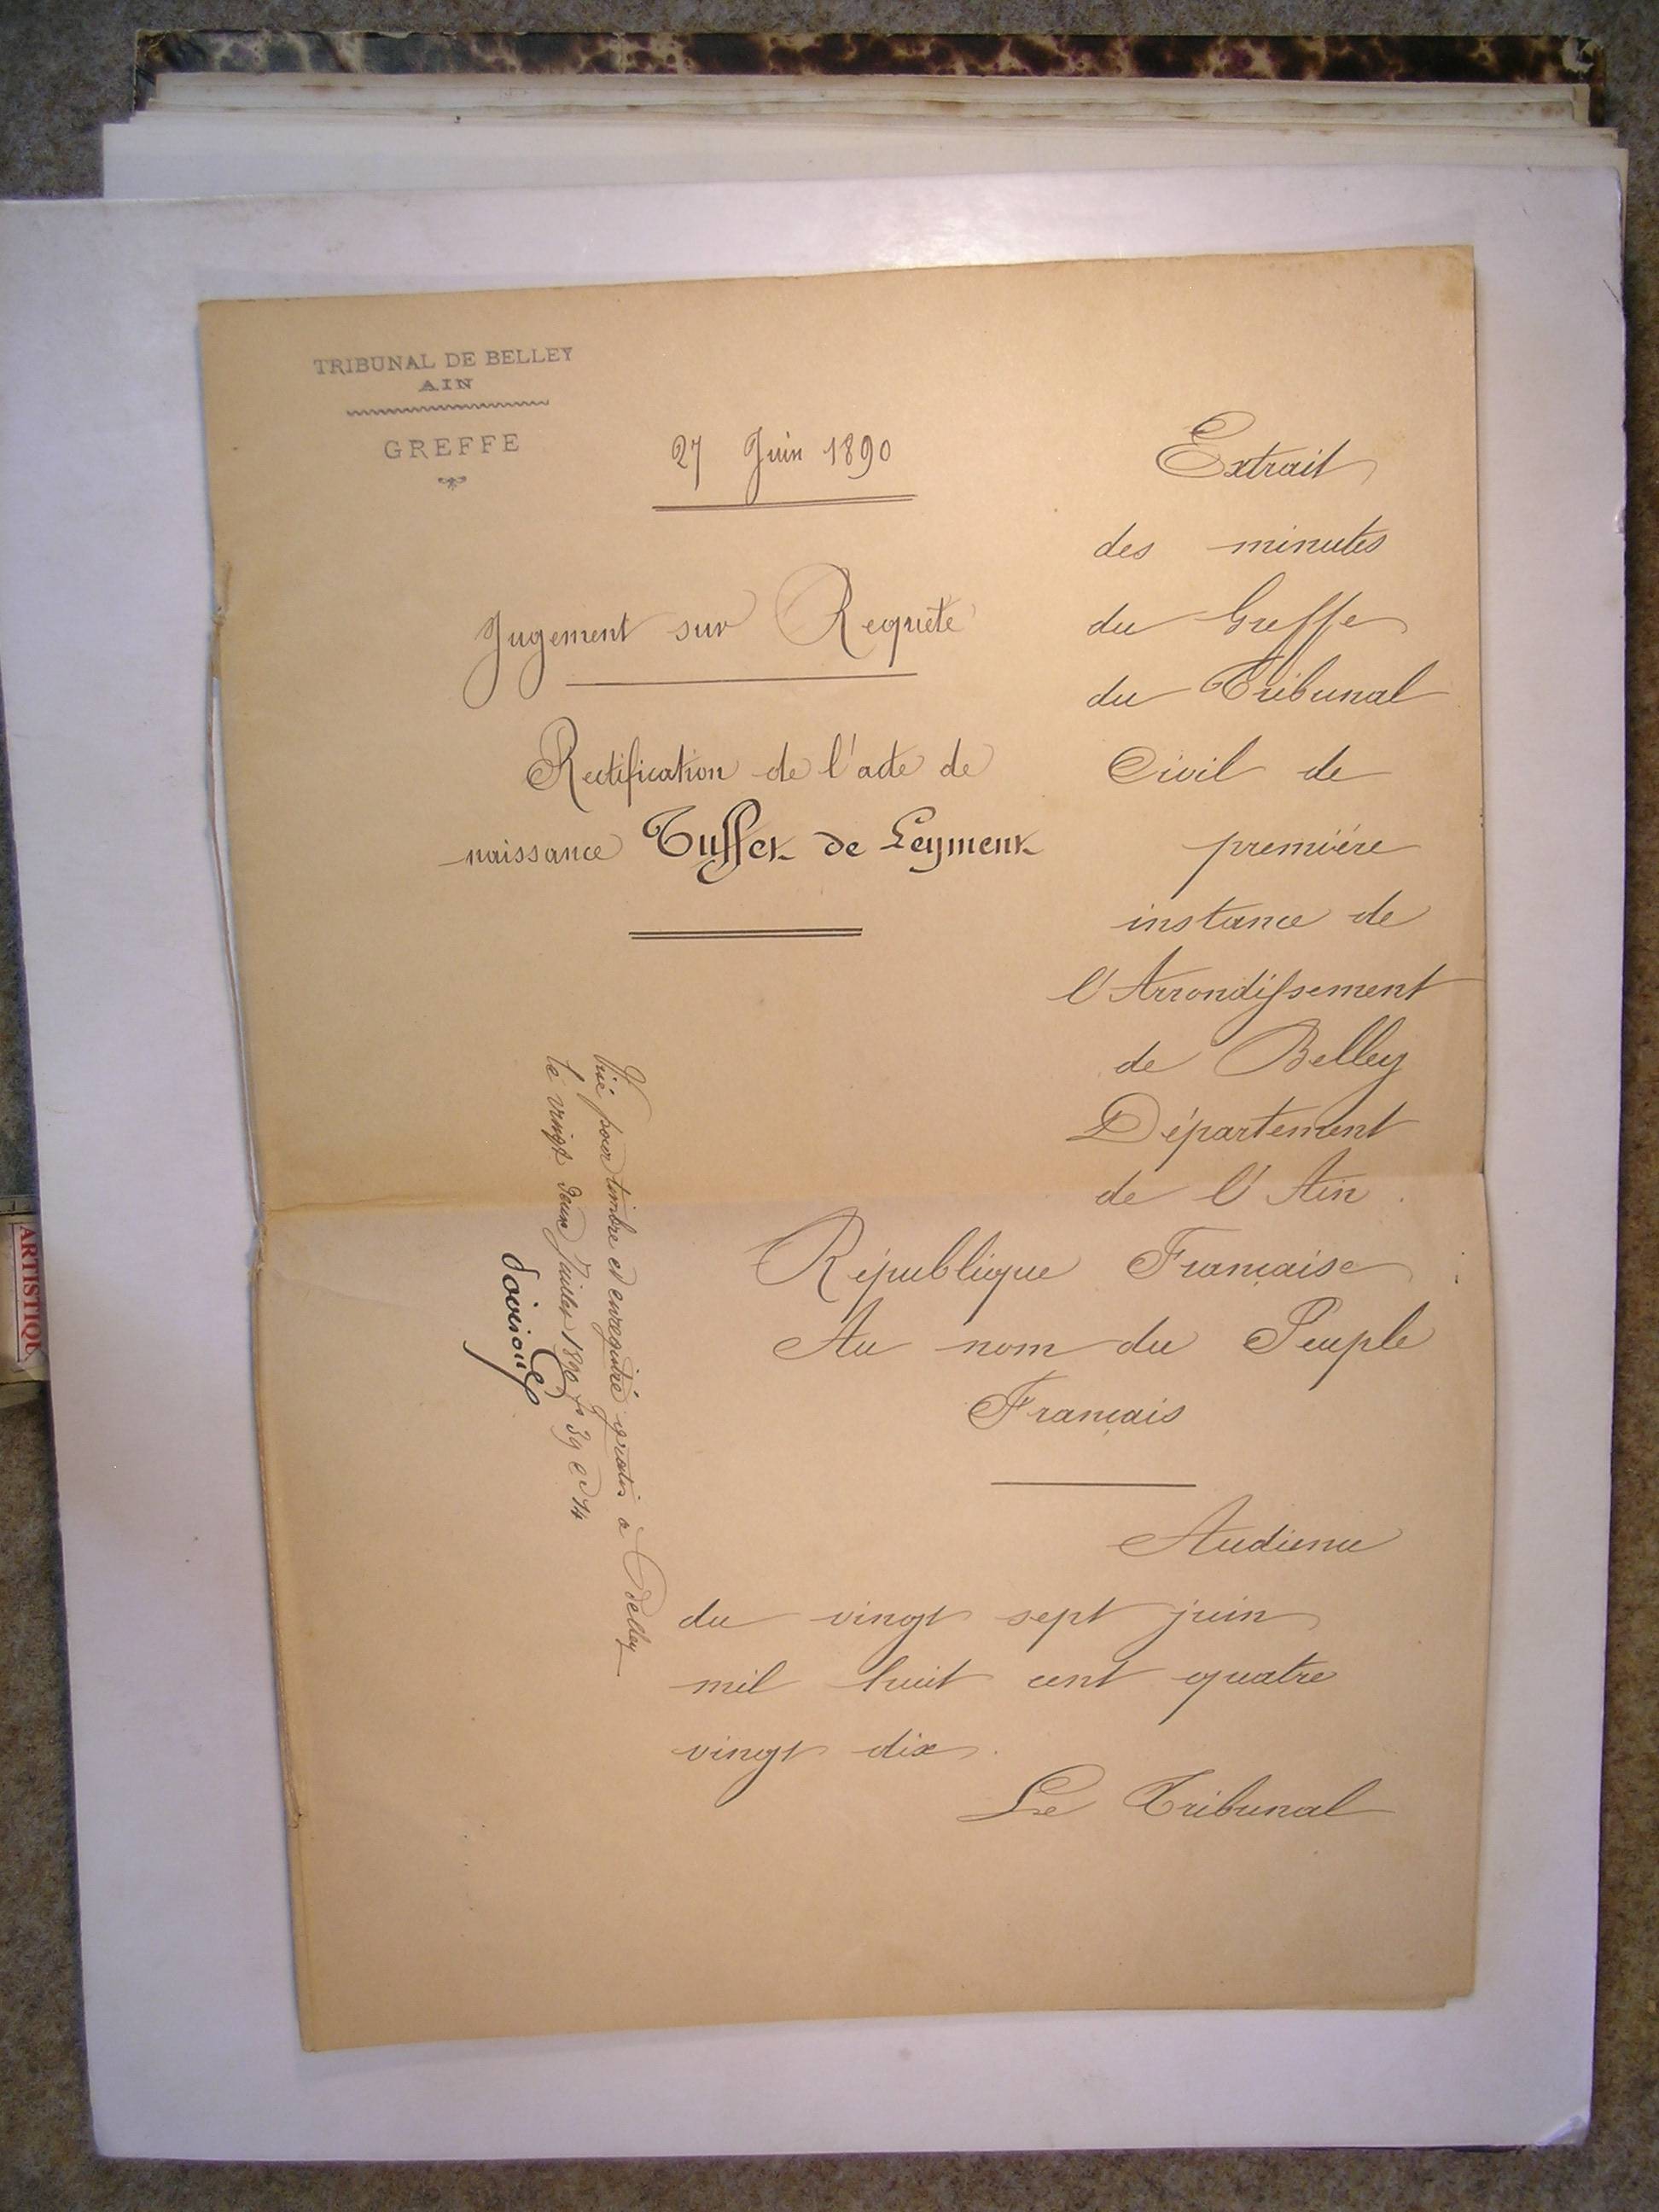 TRIBUNAL DE BELLEY
AIN
GREFFE
27 Juin 1890
Jugement sur Requête
Rectification de l'acte de
naissance Tuffet de Leyment
Extrait
des minutes
du Greffe
du Tribunal
Civil de
première
instance de
l'Arrondissement
de Belley
Département
de l'Ain.
République Française
Au nom du Peuple
Français
Audience
du vingt sept juin
mil huit cent quatre
vingt dix.
Le Tribunal
Visé pour timbre et enregistré gratis à Belley
le vingt deux Juillet 1890 fo 39 c 14
ARTISTIQU